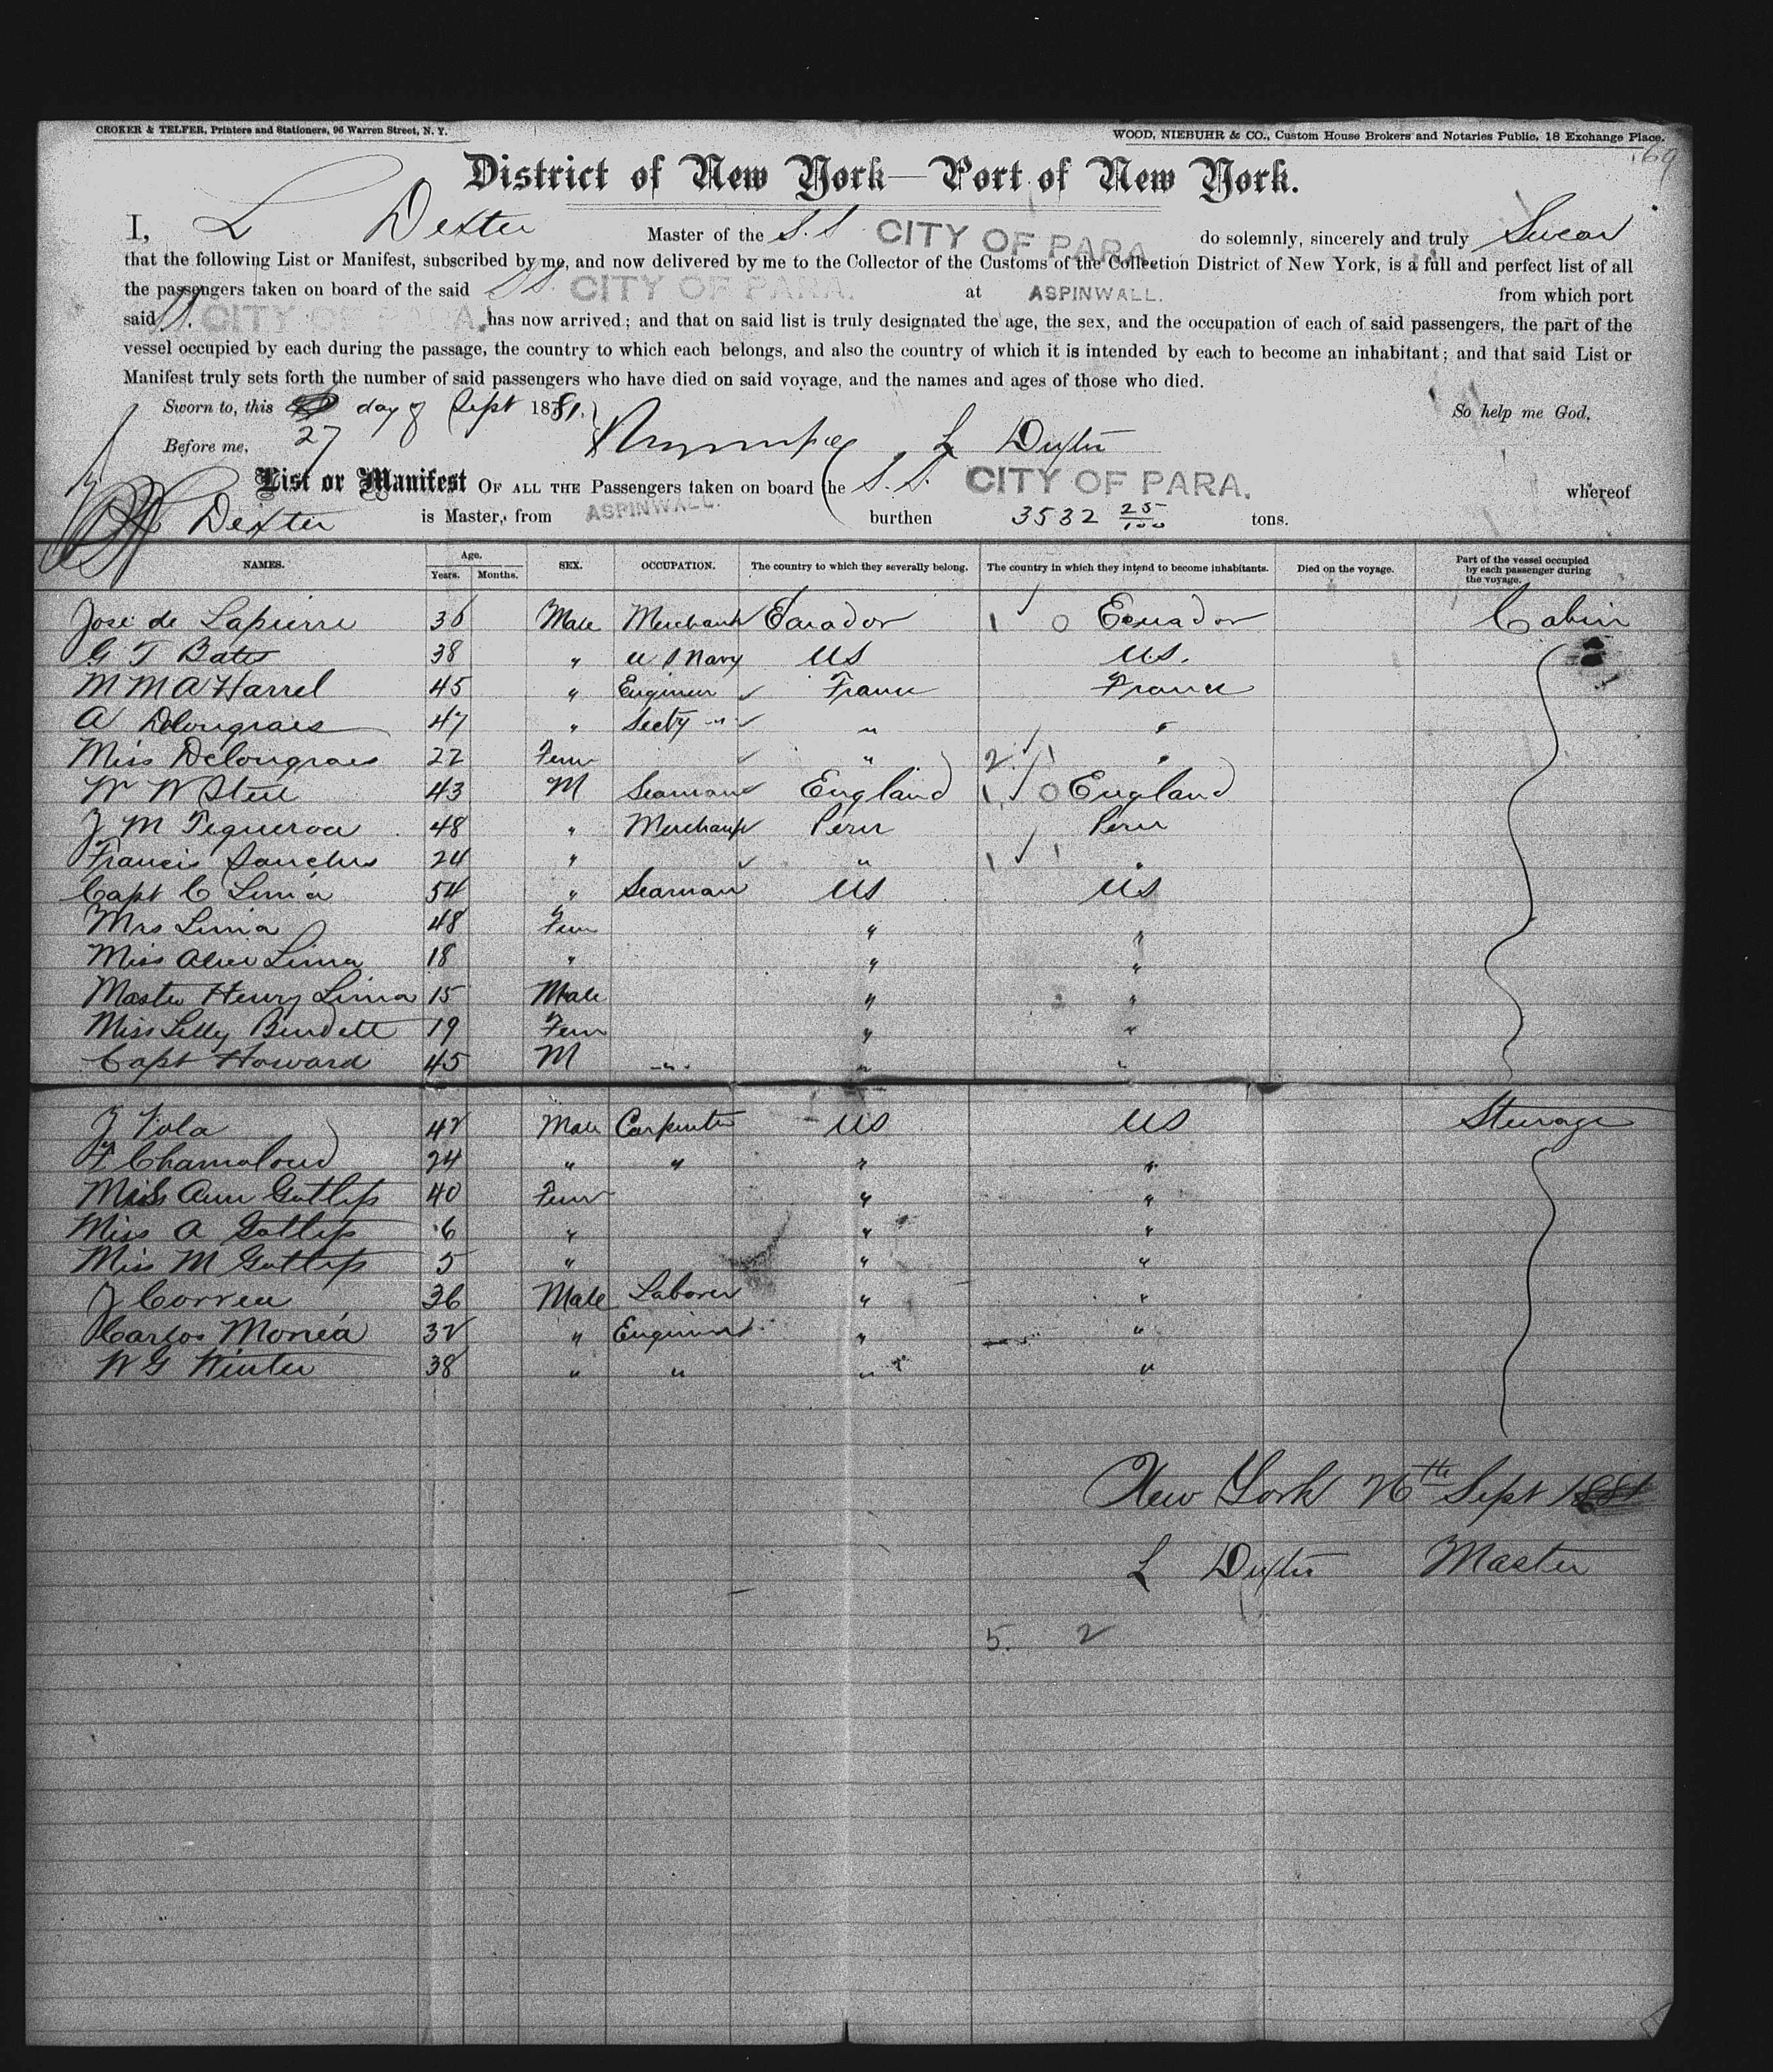 CROKER & TELFER, Printers and Stationers, 96 Warren Street, N. Y.
WOOD, NIEBUHR & CO., Custom House Brokers and Notaries Public, 18 Exchange Place.
169
District of New York—Port of New York.
I, L Dexter Master of the S.S CITY OF PARA. do solemnly, sincerely and truly Swear
that the following List or Manifest, subscribed by me, and now delivered by me to the Collector of the Customs of the Collection District of New York, is a full and perfect list of all
the passengers taken on board of the said SS. CITY OF PARA. at ASPINWALL. from which port
said SS. CITY OF PARA. has now arrived; and that on said list is truly designated the age, the sex, and the occupation of each of said passengers, the part of the
vessel occupied by each during the passage, the country to which each belongs, and also the country of which it is intended by each to become an inhabitant; and that said List or
Manifest truly sets forth the number of said passengers who have died on said voyage, and the names and ages of those who died.
Sworn to, this 27 day of Sept 1881. So help me God.
Before me, L Dexter
List or Manifest OF ALL THE Passengers taken on board the S.S. CITY OF PARA. whereof
Dexter is Master, from ASPINWALL. burthen 3532 25/100 tons.
NAMES. Age. Years. Months. SEX. OCCUPATION. The country to which they severally belong. The country in which they intend to become inhabitants. Died on the voyage. Part of the vessel occupied by each passenger during the voyage.
José de Lapierre 36 Male Merchant Ecuador 1 0 Ecuador Cabin
G T Bates 38 " U S Navy US US.
M M A Harrel 45 " Engineer France France
A Delongraes 47 " Secty " " "
Miss Delongraes 22 Fem " 2 1 "
W W Steel 43 M Seaman England 1 0 England
J M Figueroa 48 " Merchant Peru Peru
Francis Sanches 24 " " 1 1 "
Capt C Lima 54 " Seaman US US
Mrs Lima 48 Fem " "
Miss Alice Lima 18 " " "
Master Henry Lima 15 Male " "
Miss Lilly Burdett 19 Fem " "
Capt Howard 45 M " " "
J Vola 42 Male Carpenter US US Steerage
F Chamaloud 24 " " " "
Miss Ann Gottlip 40 Fem " "
Miss A Gottlip 6 " " "
Miss M Gottlip 5 " " "
J Correa 36 Male Laborer " "
Carlos Monéa 32 " Engineer " "
W G Winter 38 " " " "
New York 26th Sept 1881
L Dexter Master
5. 2